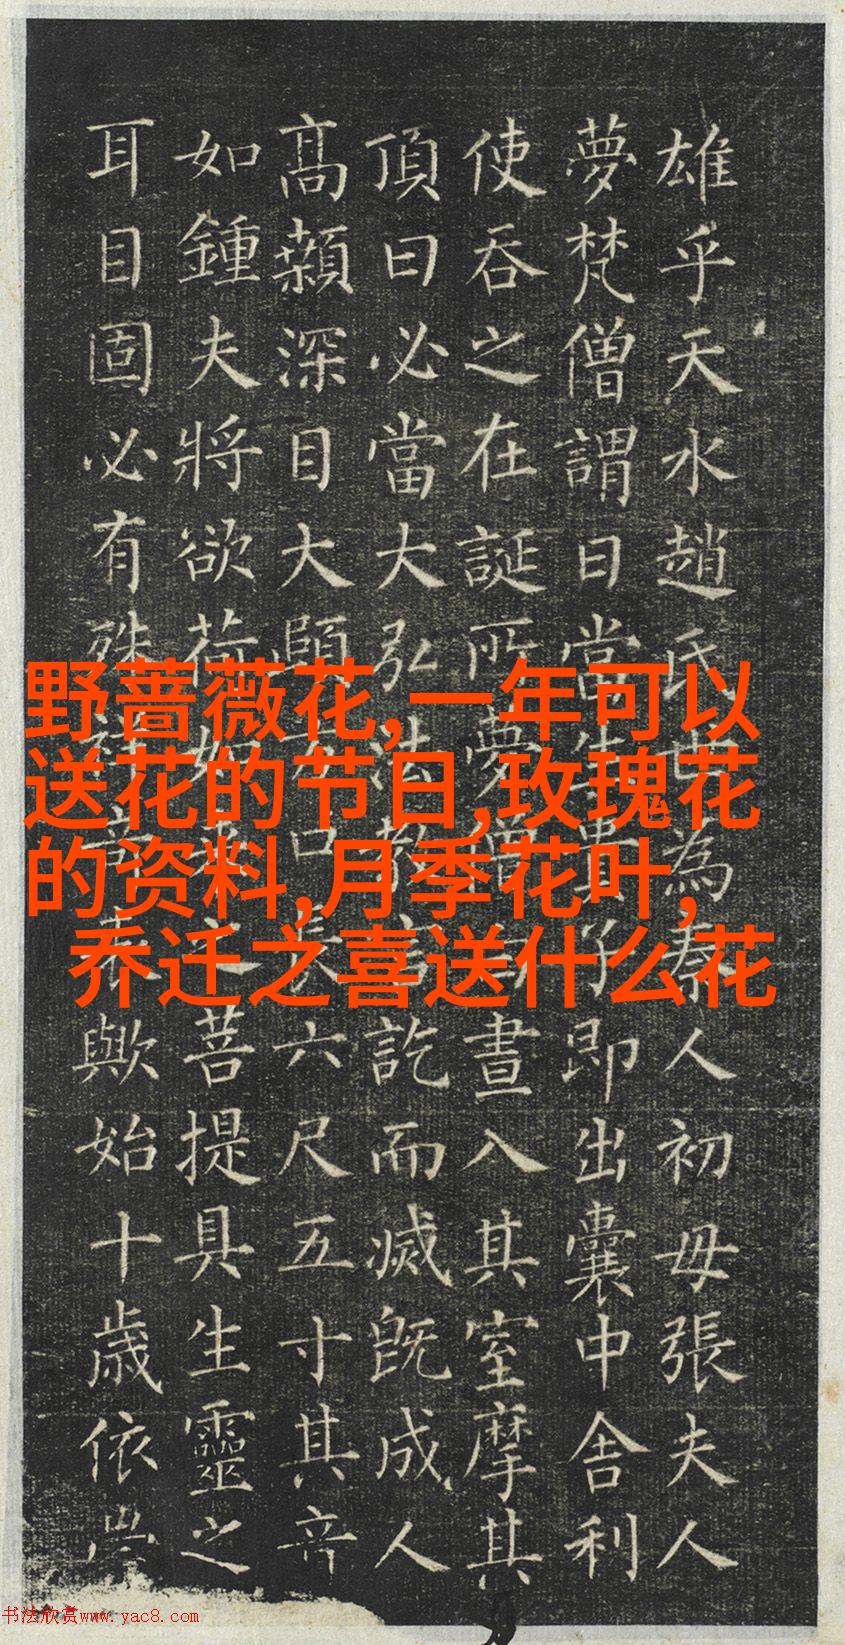 雄乎天水趙氏世為秦人初母張夫人
夢梵僧謂曰當生貴子即出囊中舍利
使吞之在誕所夢僧白晝入其室摩其
頂曰必當大弘法教言訖而滅既成人
高顙深目大頤方口長六尺五寸其音
如鍾夫將欲荷如來之菩提具生靈之
耳目固必有殊祥奇表歟始十歲依
野蔷薇花,一年可以
送花的节日,玫瑰花
的资料,月季花叶,
乔迁之喜送什么花
书法欣赏www.yac8.com